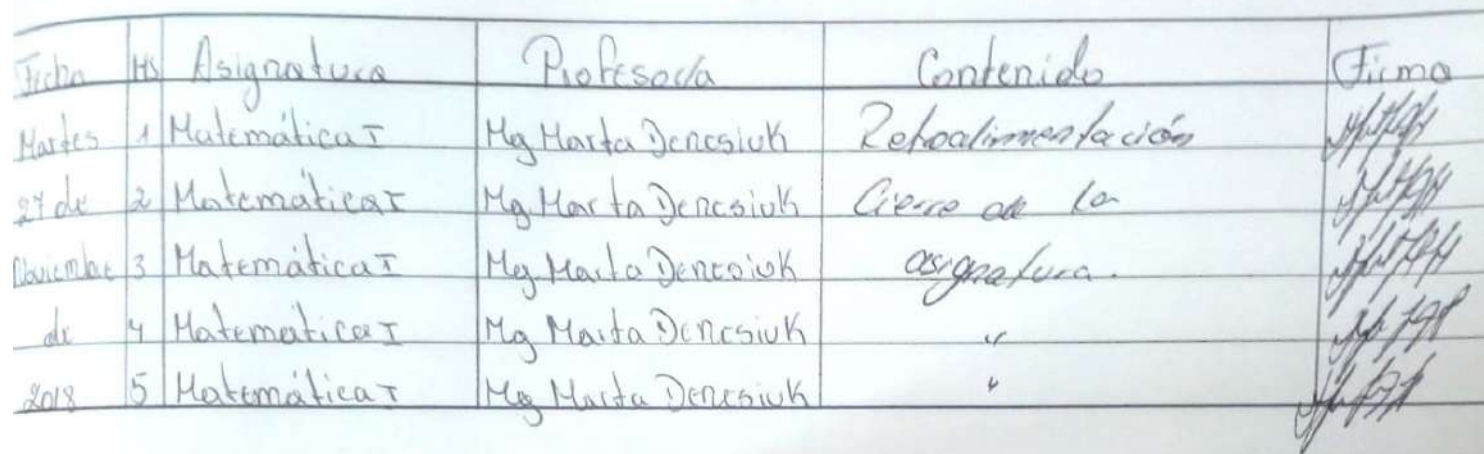 Fecha HS Asignatura Profesor/a Contenido Firma
Martes 1 Matemática I Mg Marta Denesiuk Retroalimentación
27 de 2 Matemática I Mg. Marta Denesiuk Cierre de la
Noviembre 3 Matemática I Mg Marta Denesiuk asignatura.
de 4 Matemática I Mg Marta Denesiuk "
2018 5 Matemática I Mg Marta Denesiuk "